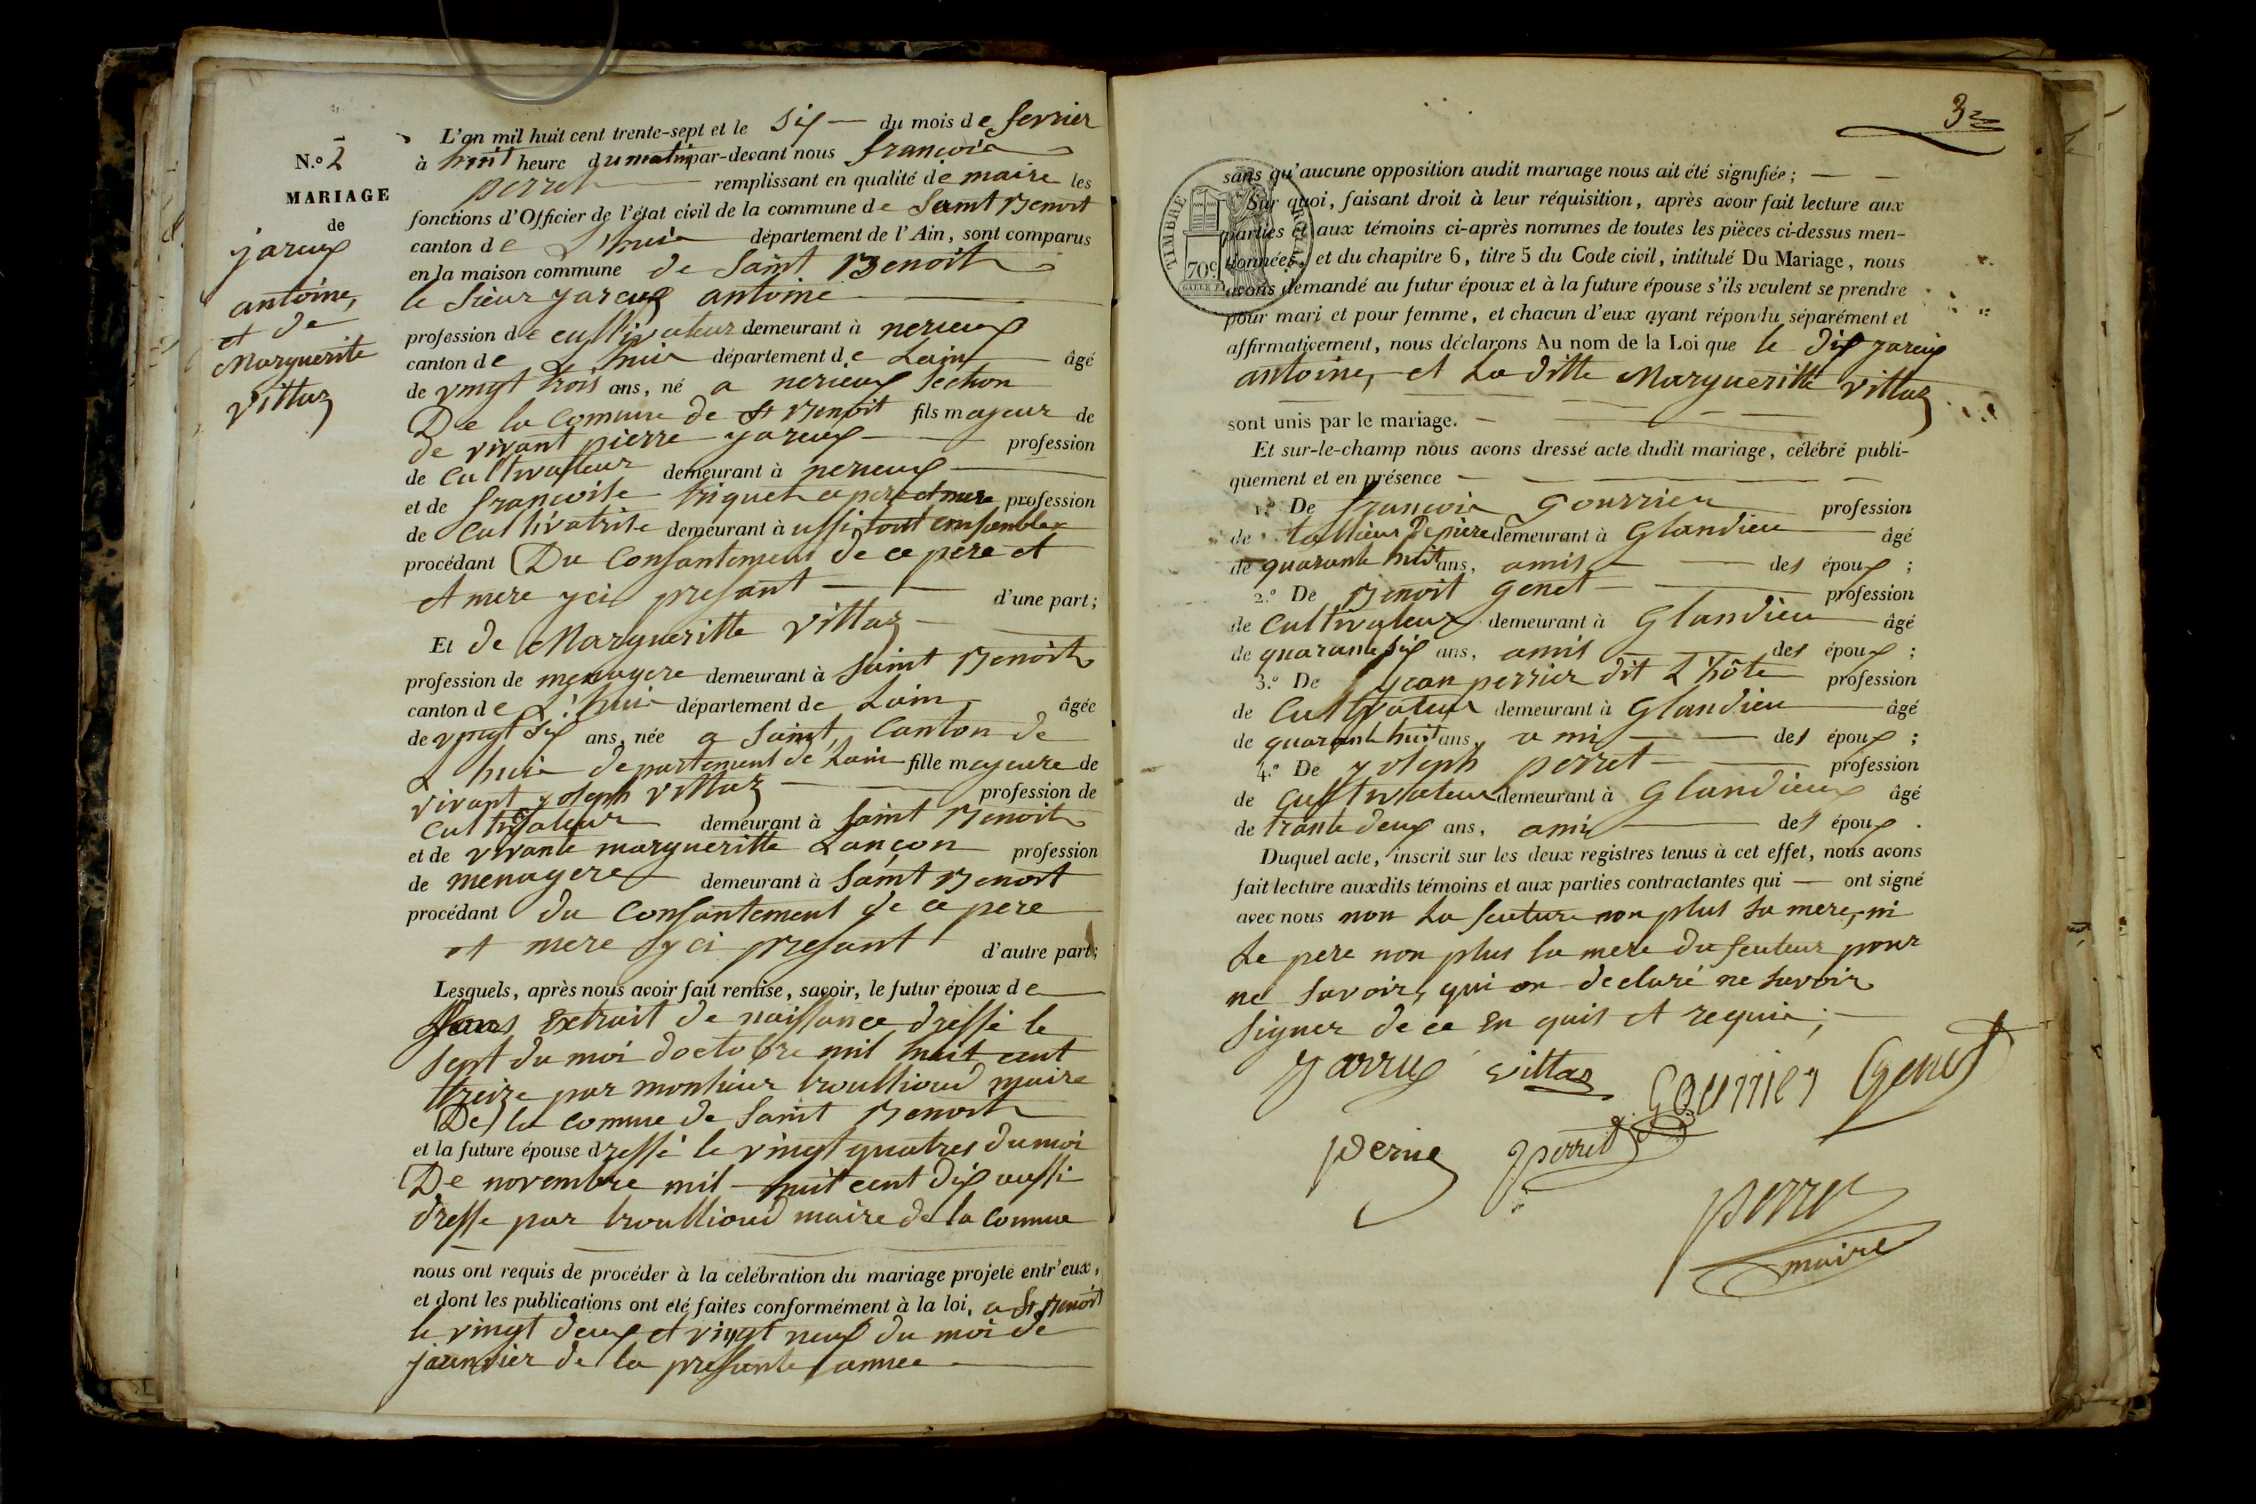 N.o 2
MARIAGE
de
jareux
antoine,
et de
Marguerite
Vittaz
L'an mil huit cent trente-sept et le six du mois de fevrier
à huit heure du matin par-devant nous françois
perret remplissant en qualité de maire les
fonctions d'Officier de l'état civil de la commune de Saint Benoit
canton de Lhuis département de l'Ain, sont comparus
en la maison commune de Saint Benoit
le Sieur jareux antoine
profession de cultivateur demeurant à nerieux
canton de Lhuis département de Lain âgé
de vingt trois ans, né a nerieux Section
De la comune de St Benoit fils majeur de
de vivant pierre yareux profession
de Cultivateur demeurant à nerieux
et de françoise triquet ce pere et mere profession
de Cultivatrise demeurant à ussi tout ensembler
procédant Du Consantement de ce pere et
et mere yci presant d'une part;
Et de Margueritte Vittaz
profession de menagere demeurant à Saint Benoit
canton de Lhuis département de Lain âgée
de vingt six ans, née a Saint, Canton de
Lhuis departement de Lain fille majeure de
vivant joseph Vittaz profession de
cultivateur demeurant à Saint Benoit
et de vivante margueritte Lançon profession
de menagere demeurant à Saint Benoit
procédant du Consantement de ce pere
et mere yci presant d'autre part;
Lesquels, après nous avoir fait remise, savoir, le futur époux de
Extrait de naissance dressé le
sept du moi doctobre mil huit cent
treize par monsieur trouillioud maire
De la comune de Saint Benoit
et la future épouse dressé le vingt quatres du moi
De novembre mil huit cent dix aussi
dresse par trouillioud maire de la comune
nous ont requis de procéder à la célébration du mariage projeté entr'eux,
et dont les publications ont été faites conformément à la loi, a St Benoit
le vingt deux et vingt neuf du moi de
jaunvier de la presante annee
3
TIMBRE ROYAL
70c.
sans qu'aucune opposition audit mariage nous ait été signifiée;
Sur quoi, faisant droit à leur réquisition, après avoir fait lecture aux
parties et aux témoins ci-après nommes de toutes les pièces ci-dessus men-
tionnées, et du chapitre 6, titre 5 du Code civil, intitulé Du Mariage, nous
avons demandé au futur époux et à la future épouse s'ils veulent se prendre
pour mari et pour femme, et chacun d'eux ayant répondu séparément et
affirmativement, nous déclarons Au nom de la Loi que le dix yareux
antoine, et La ditte Margueritte Vittaz
sont unis par le mariage.
Et sur-le-champ nous avons dressé acte dudit mariage, célébré publi-
quement et en présence
1.o De françois Gourrier profession
de tallieur de piere demeurant à Glandieu âgé
de quarante huit ans, amis des époux;
2.o De Benoit genet profession
de Cultivateur demeurant à Glandieu âgé
de quarante six ans, amis des époux;
3.o De yean perrier dit L'hôte profession
de Cultivateur demeurant à Glandieu âgé
de quarante huit ans, ami des époux;
4.o De yoseph perret profession
de Cultivateur demeurant à Glandieux âgé
de trante deux ans, ami des époux.
Duquel acte, inscrit sur les deux registres tenus à cet effet, nous avons
fait lecture auxdits témoins et aux parties contractantes qui ont signé
avec nous non La feuture non plus sa mere, ni
Le pere non plus la mere du feuteur pour
ne savoir, qui on declaré ne savoir
signer de ce En quis et requis;
yarrux vittaz Gourrier Genet
perrie perret
perret
maire